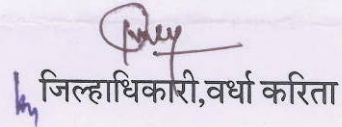 जिल्हाधिकारी,वर्धा करिता